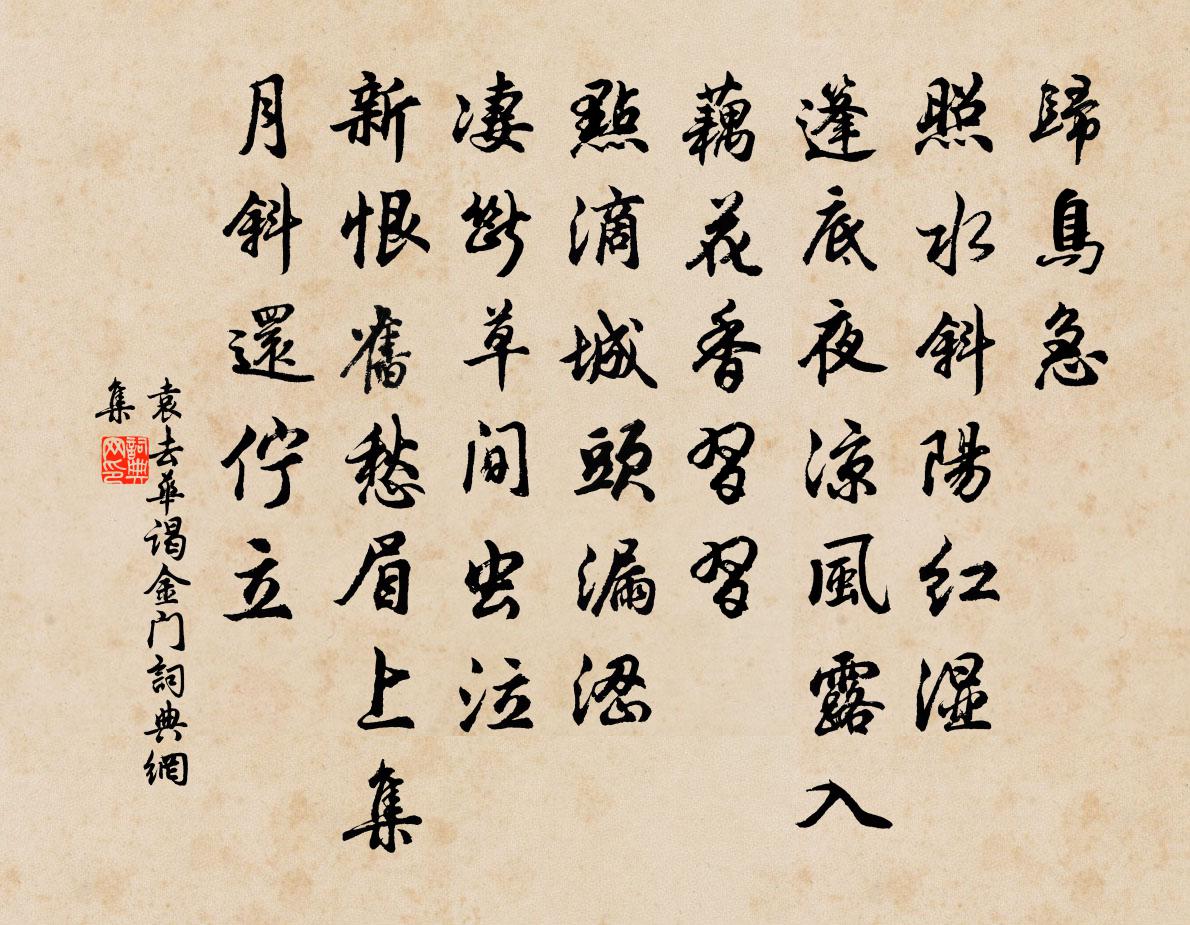 歸鳥急
照水斜陽紅濕
蓬底夜涼風露入
藕花香習習
點滴城頭漏澀
凄斷草間虫泣
新恨舊愁眉上集
月斜還佇立
袁去華谒金门詞典網
集
詞典
网印